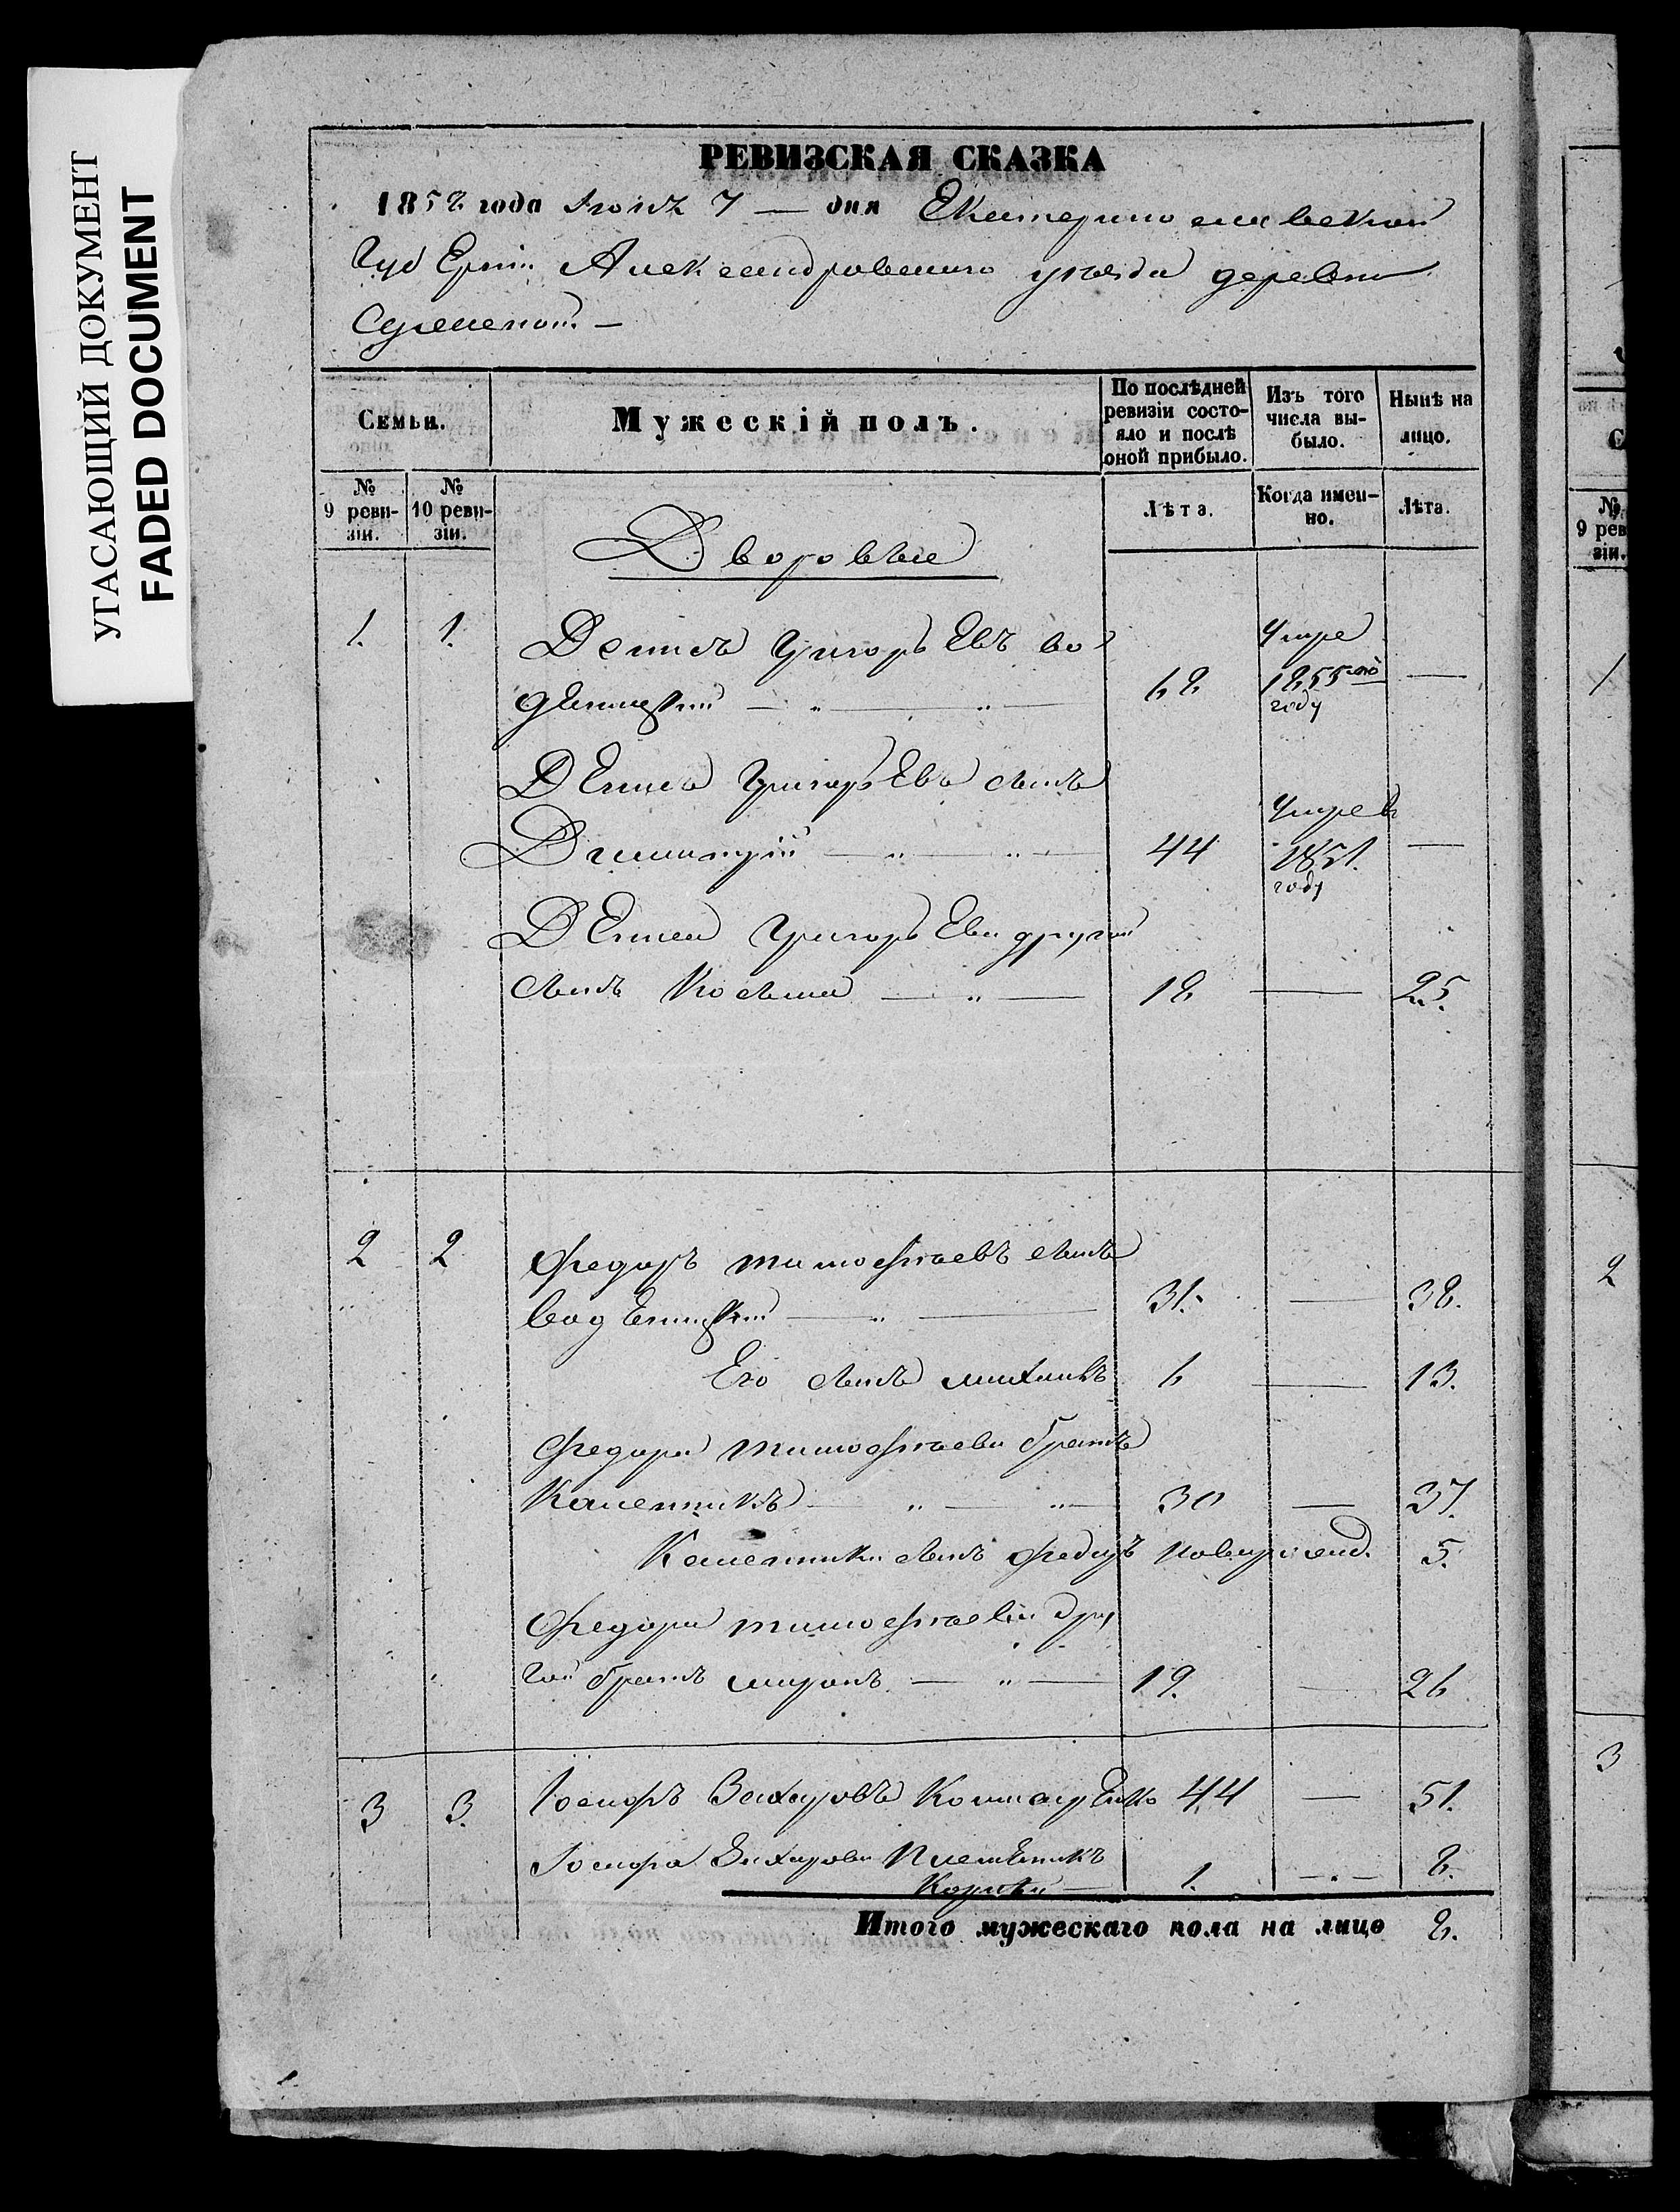 УГАСАЮЩИЙ ДОКУМЕНТ
FADED DOCUMENT
РЕВИЗСКАЯ СКАЗКА
1858 года Іюнь 7 — дня Екатеринославской
Губерніи Александровскаго уѣзда деревни
Семьи.
Мужескій полъ.
По послѣдней ревизіи состояло и послѣ оной прибыло.
Изъ того числа выбыло.
Нынѣ на лицо.
№ 9 ревизіи.
№ 10 ревизіи.
Лѣта.
Когда именно.
Лѣта.
Дворовые
1. 1. Денисъ Григорьевъ Во-
68 Умре 1855го году —
Дениса Григорьева сынъ
Димитрій — 44 Умре въ 1851. году —
Дениса Григорьева другой
сынъ Косьма — 18 — 25.
2 2 Федоръ Тимофѣевъ сынъ
31. — 38.
Его сынъ Михаилъ 6 — 13.
Федора Тимофѣева братъ
Калениикъ — 30 — 37.
сынъ Федоръ новорожд. 5.
Федора Тимофѣева дру
гой братъ Миронъ — 19. — 26
3 3. Іосифъ Захаровъ 44 — 51.
Іосифа Захарова племенникъ
1. — 8.
Итого мужескаго пола на лицо 8.
№ 9 ревзіи.
1
2
3